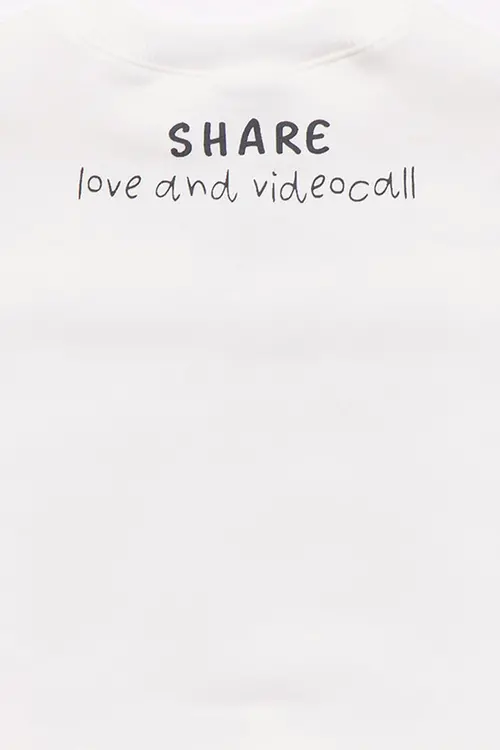 SHARE
love and videocall